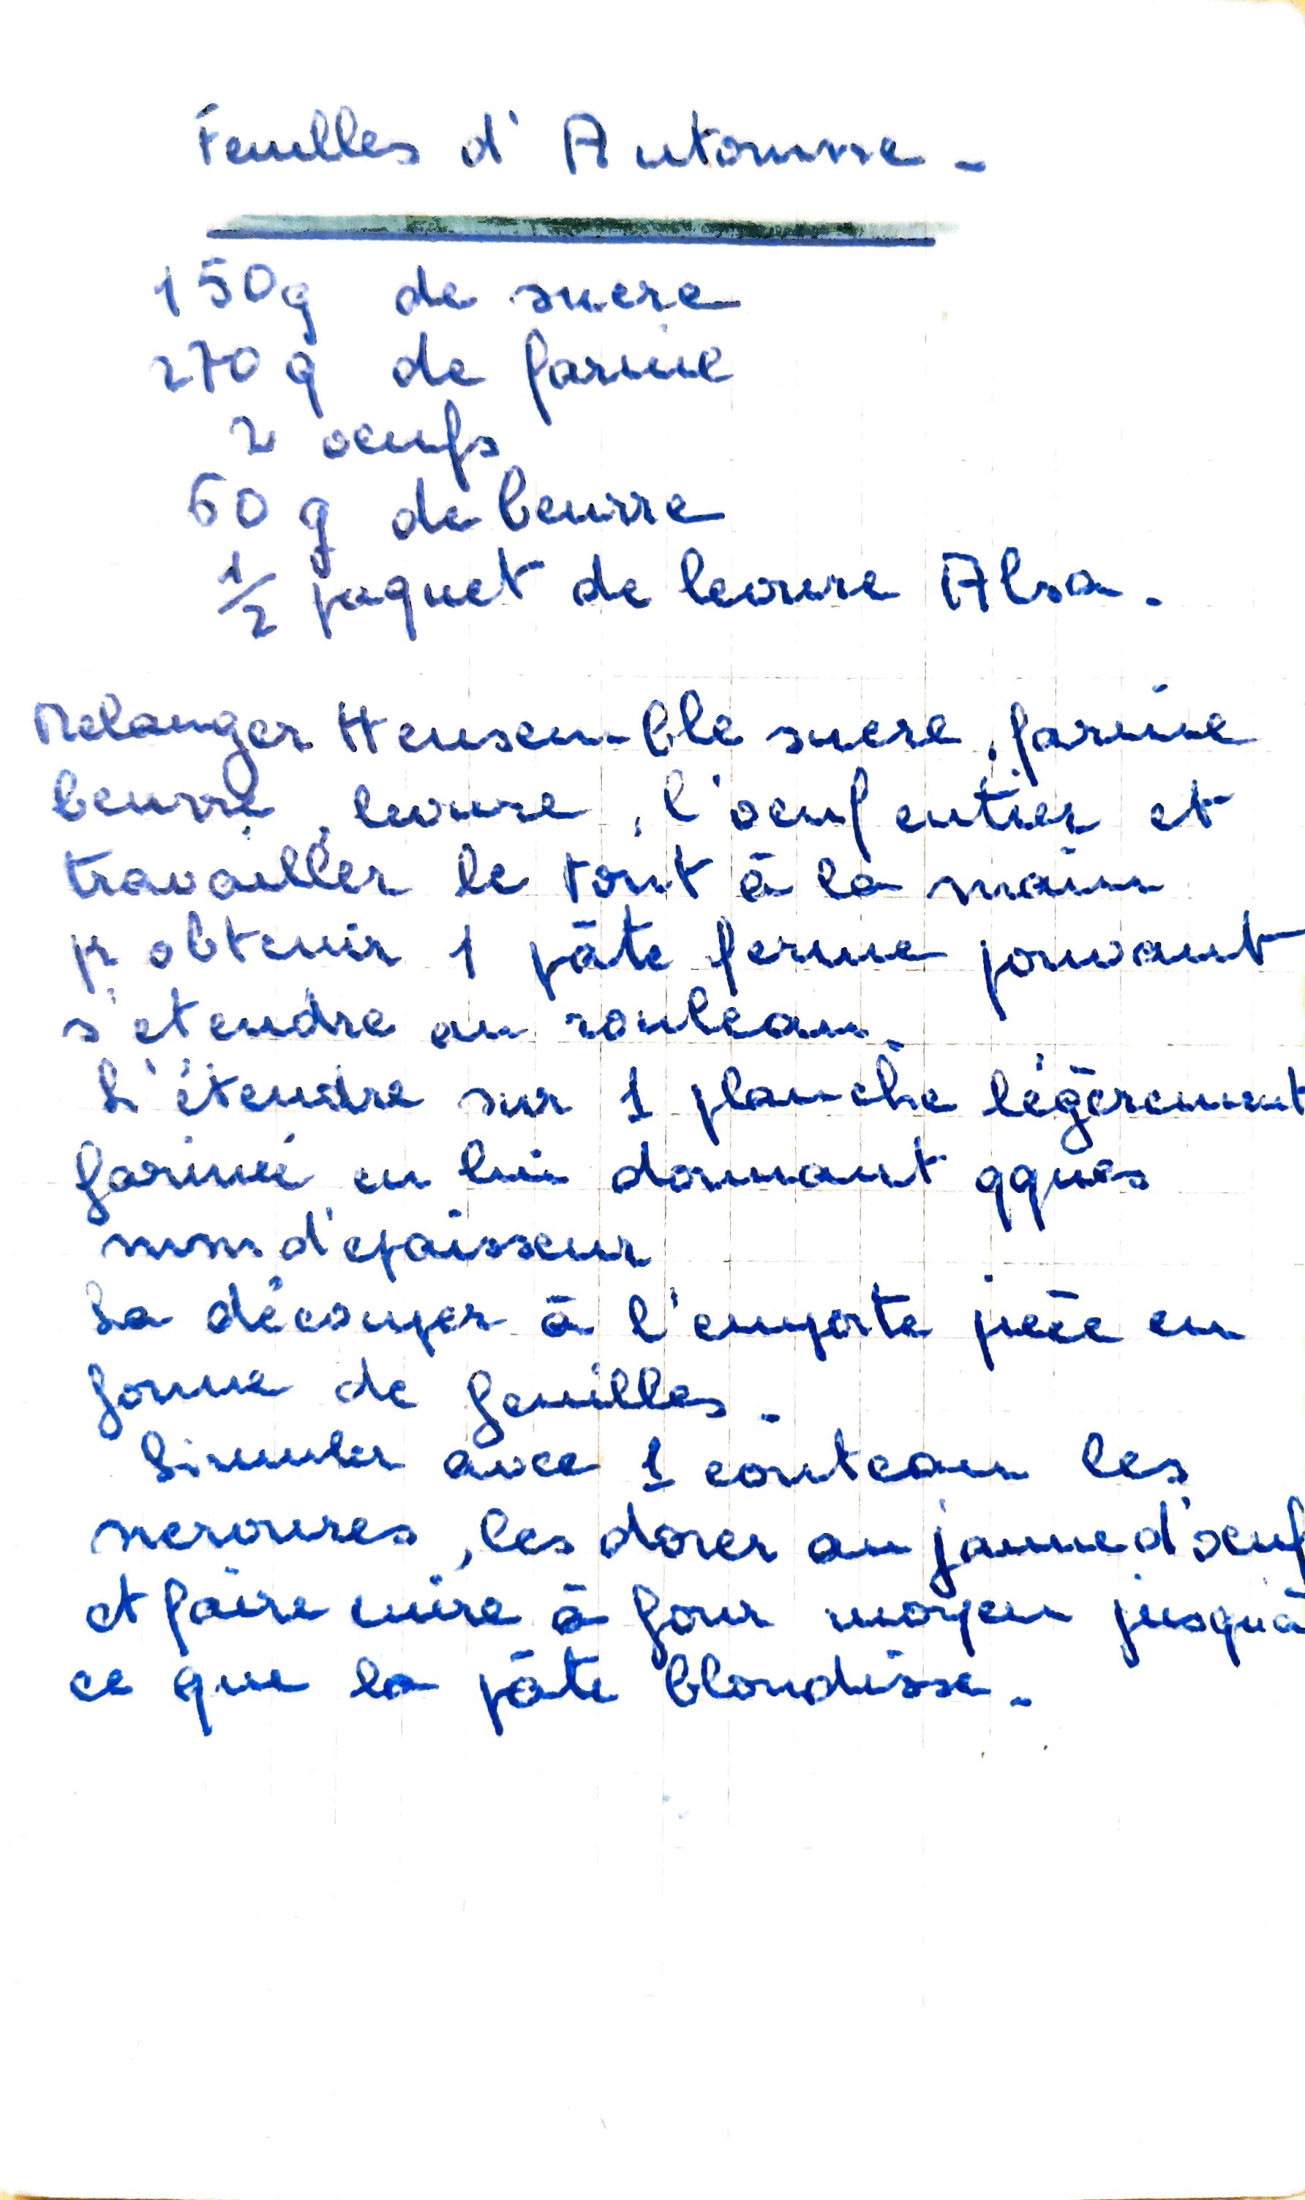 Feuilles d'Automne -
150g de sucre
270 g de farine
2 oeufs
60 g de beurre
1/2 paquet de levure Alsa.
Melanger tt ensemble sucre, farine
beurre, levure, l'oeuf entier et
travailler le tout à la main
pr obtenir 1 pâte ferme pouvant
s'etendre au rouleau.
L'étendre sur 1 planche légèrement
fariné en lui donnant qques
mms d'epaisseur
La découper à l'emporte pièce en
forme de feuilles.
Simuler avec 1 couteau les
nervures, les dorer au jaune d'oeuf
et faire cuire à four moyen jusqu'à
ce que la pâte blondisse.